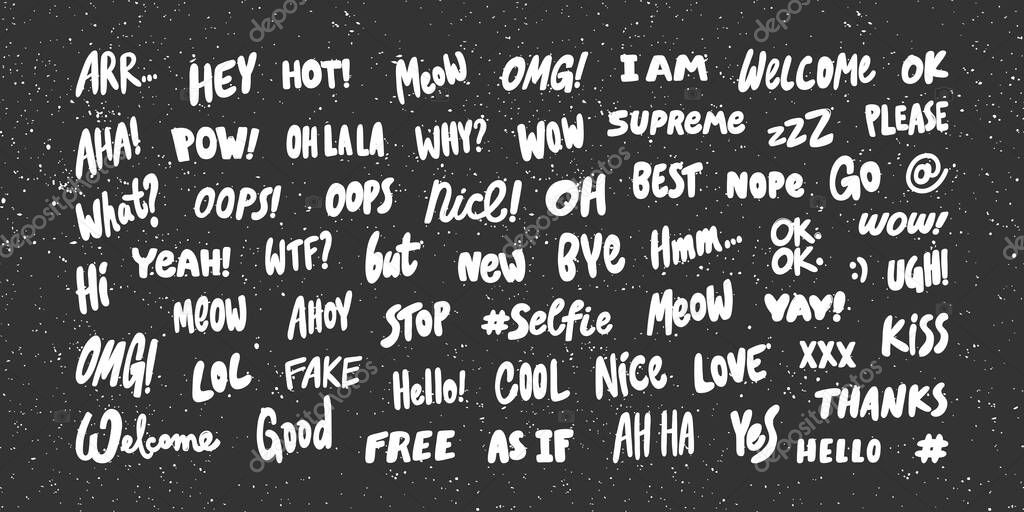 ARR... HEY HOT! Meow OMG! I AM Welcome OK
AHA! POW! OH LA LA WHY? WOW SUPREME zzZ PLEASE
What? OOPS! OOPS Nice! OH BEST NOPE GO @
Hi YEAH! WTF? but New BYE Hmm... OK. OK. WOW!
MEOW AHOY STOP #Selfie MEOW YAY! :) UGH!
OMG! LOL FAKE Hello! COOL NICE LOVE XXX KISS
Welcome Good FREE AS IF AH HA YES THANKS
HELLO #
depositphotos